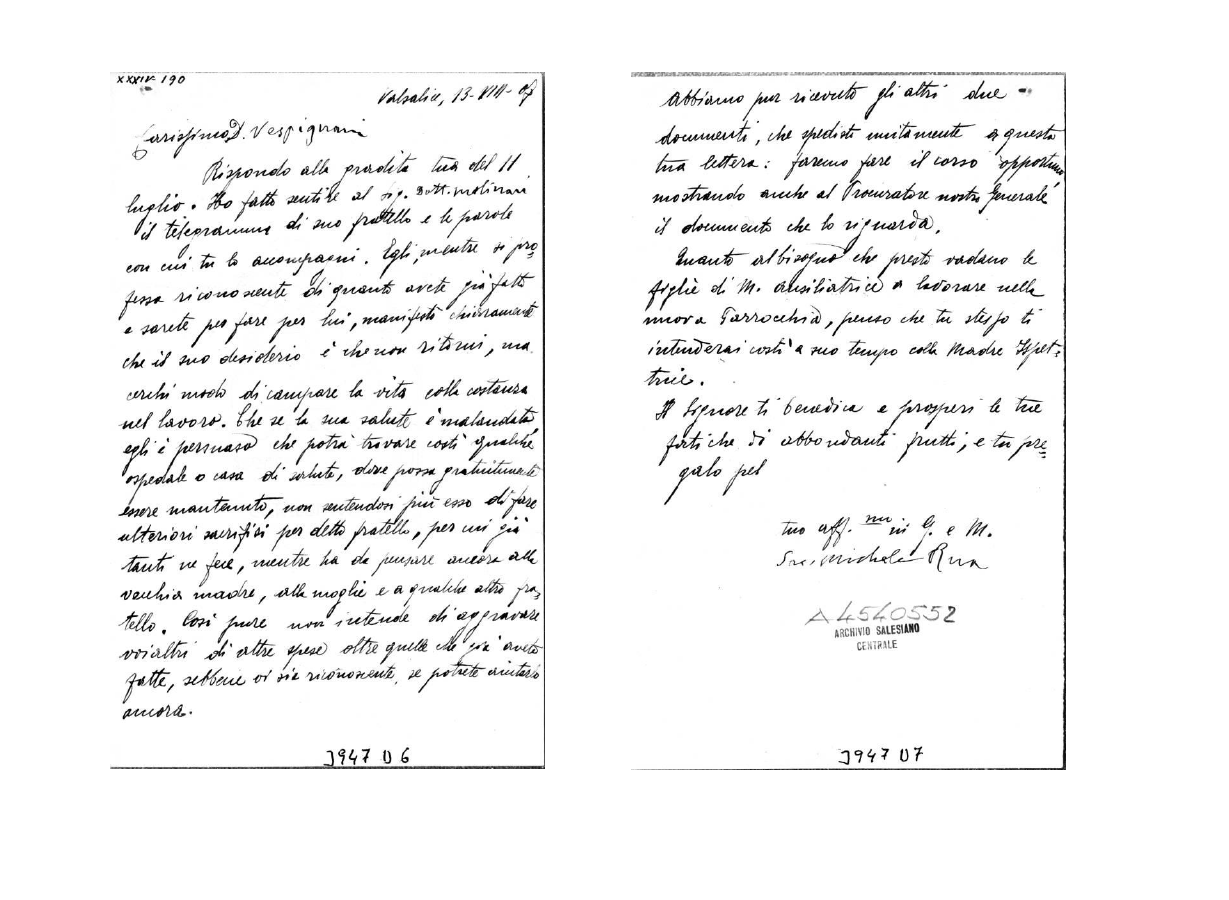 XXXIV-190
Valsalice, 13-VIII-07
Carissimo D. Vespignani
Rispondo alla gradita tua del 11
luglio. Ho fatto sentire al sig. Dott. Molinari
il telegramma di suo fratello e le parole
con cui tu lo accompagni. Egli, mentre si pro=
fessa riconoscente di quanto avete già fatto
e sarete per fare per lui, manifestò chiaramente
che il suo desiderio è che non ritorni, ma
cerchi modo di campare la vita colla costanza
nel lavoro. Che se la sua salute è malandata
egli è persuaso che potrà trovare costì qualche
ospedale o casa di salute, dove possa gratuitamente
essere mantenuto, non sentendosi più esso di fare
ulteriori sacrifizi per detto fratello, per cui già
tanti ne fece, mentre ha da pensare ancora alla
vecchia madre, alla moglie e a qualche altro fra=
tello. Così pure non intende di aggravare
voialtri di altre spese oltre quelle che già avete
fatte, sebbene vi sia riconoscente, se potrete aiutarlo
ancora.
J947 D6
Abbiamo pur ricevuto gli altri due
documenti, che spedisti unitamente a questa
tua lettera: faremo fare il corso opportuno
mostrando anche al Procuratore nostro Generale
il documento che lo riguarda.
Quanto al bisogno che presto vadano le
figlie di M. Ausiliatrice a lavorare nella
nuova Parrocchia, penso che tu stesso ti
intenderai costì a suo tempo colla Madre Ispet=
trice.
Il Signore ti benedica e prosperi le tue
fatiche di abbondanti frutti, e tu pre=
galo pel
tuo aff.mo in G. e M.
Sac. Michele Rua
A4540552
ARCHIVIO SALESIANO
CENTRALE
J947 D7